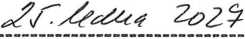 25. ledna 2027